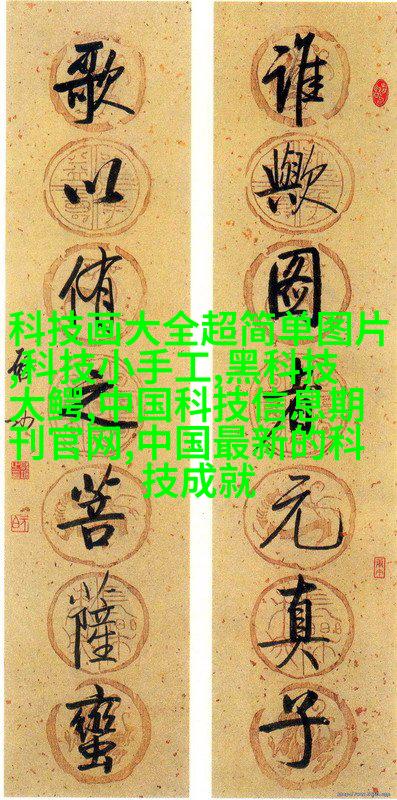 谁歟图者元真子
歌以侑之菩薩蠻
启功
科技画大全超简单图片
,科技小手工,黑科技
大鳄,中国科技信息期
刊官网,中国最新的科
技成就